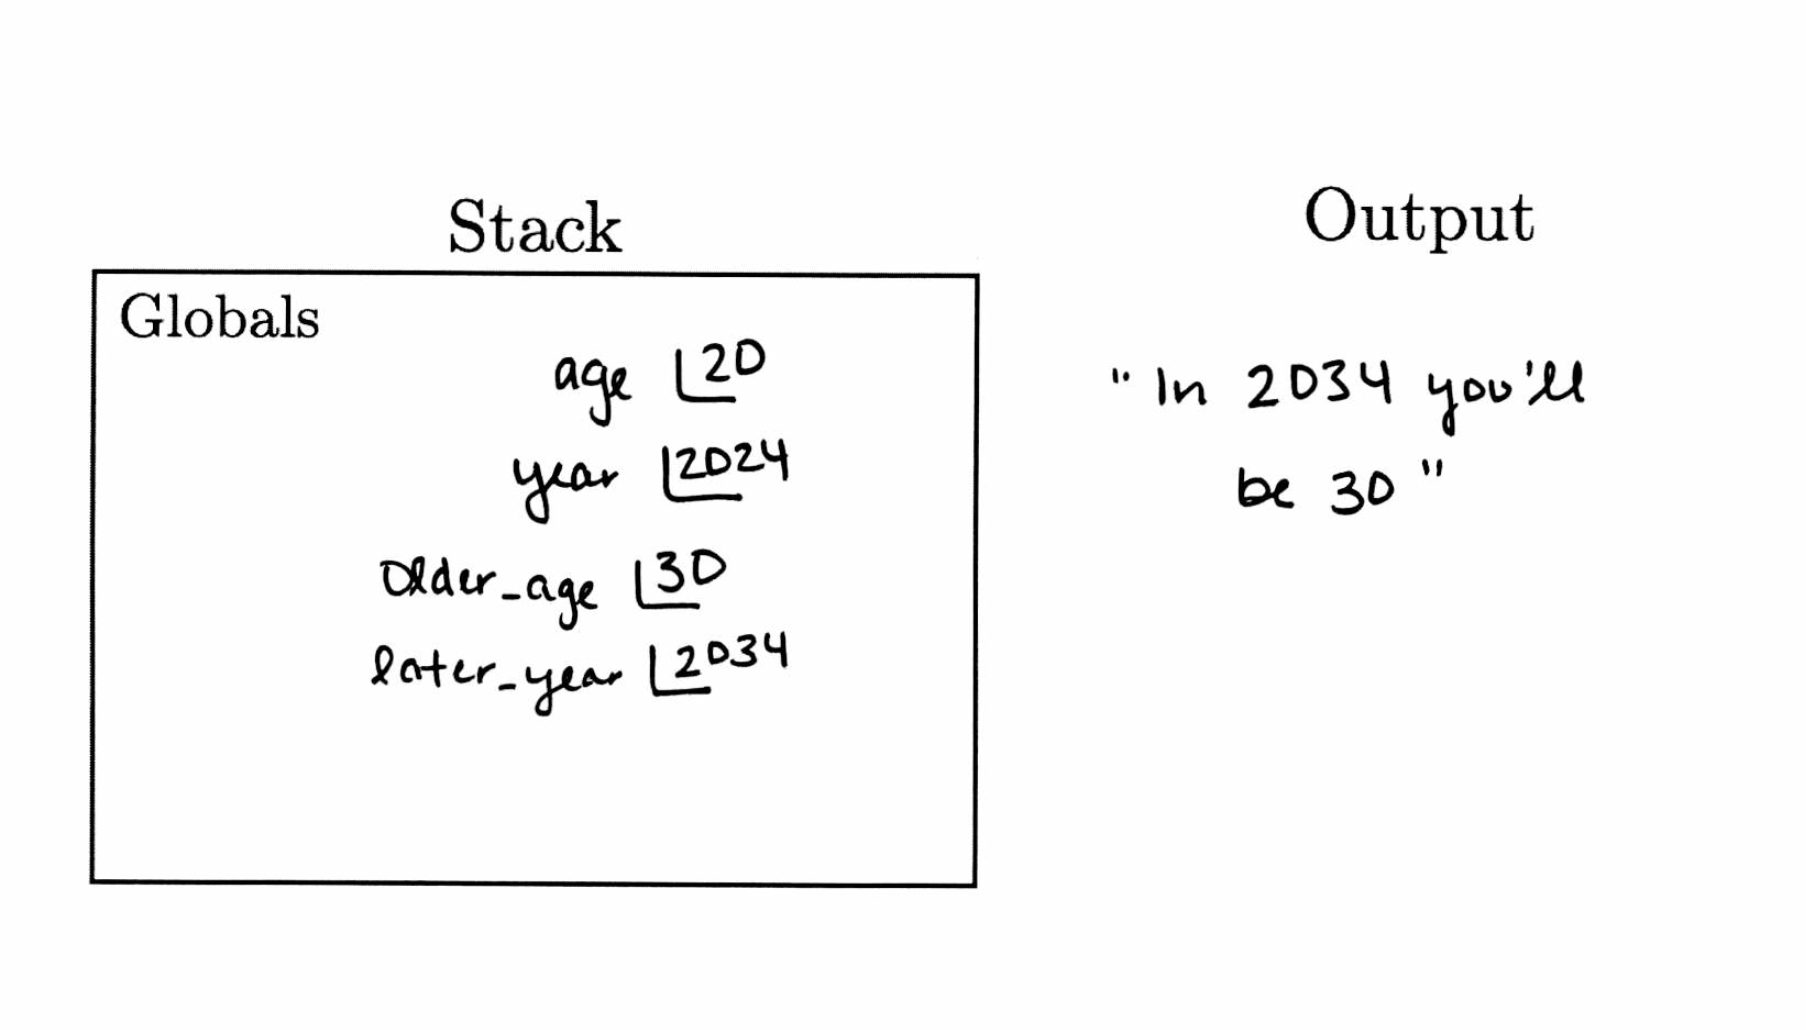 Stack
Output
Globals
age 20
year 2024
older_age 30
later_year 2034
"In 2034 you'll
be 30"